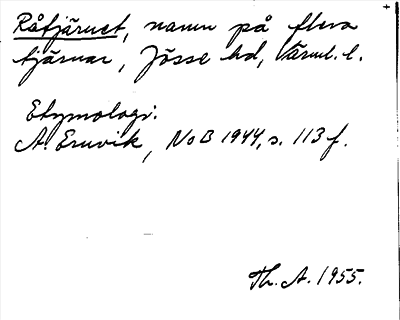 Råtjärnet, namn på flera
tjärnar, Jösse hd, Värml. l.
Etymologi:
A. Ernvik, NoB 1944, s. 113 f.
Th. A. 1955.